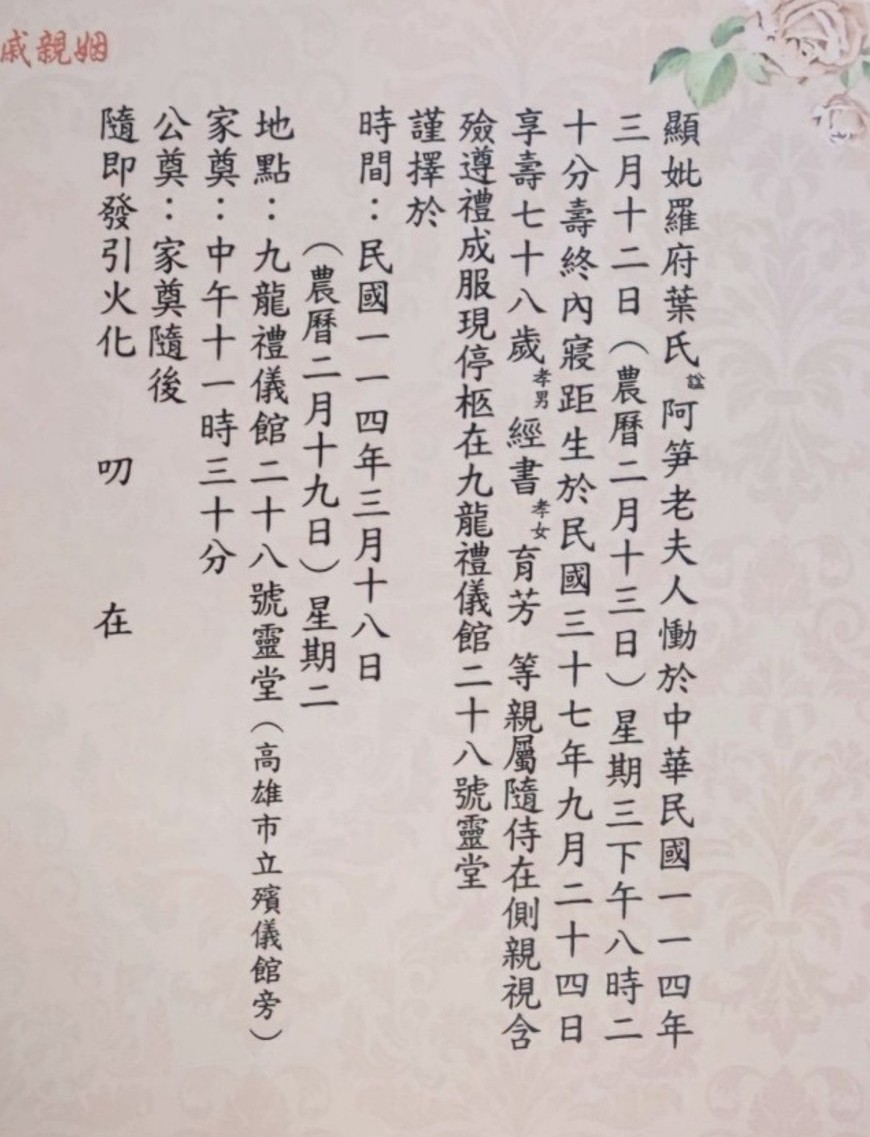 顯妣羅府葉氏諡阿笋老夫人慟於中華民國一一四年
三月十二日（農曆二月十三日）星期三下午八時二
十分壽終內寢距生於民國三十七年九月二十四日
享壽七十八歲孝男經書孝女育芳 等親屬隨侍在側親視含
殮遵禮成服現停柩在九龍禮儀館二十八號靈堂
謹擇於
時間：民國一一四年三月十八日
（農曆二月十九日）星期二
地點：九龍禮儀館二十八號靈堂（高雄市立殯儀館旁）
家奠：中午十一時三十分
公奠：家奠隨後
隨即發引火化 叨 在
姻親戚